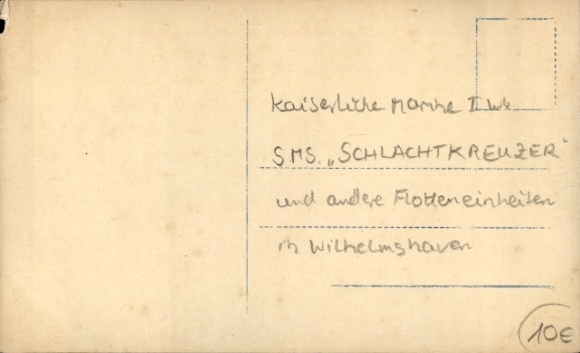 Kaiserliche Marine I. Wk
SMS. „SCHLACHTKREUZER"
und andere Flotteneinheiten
in Wilhelmshaven
10€